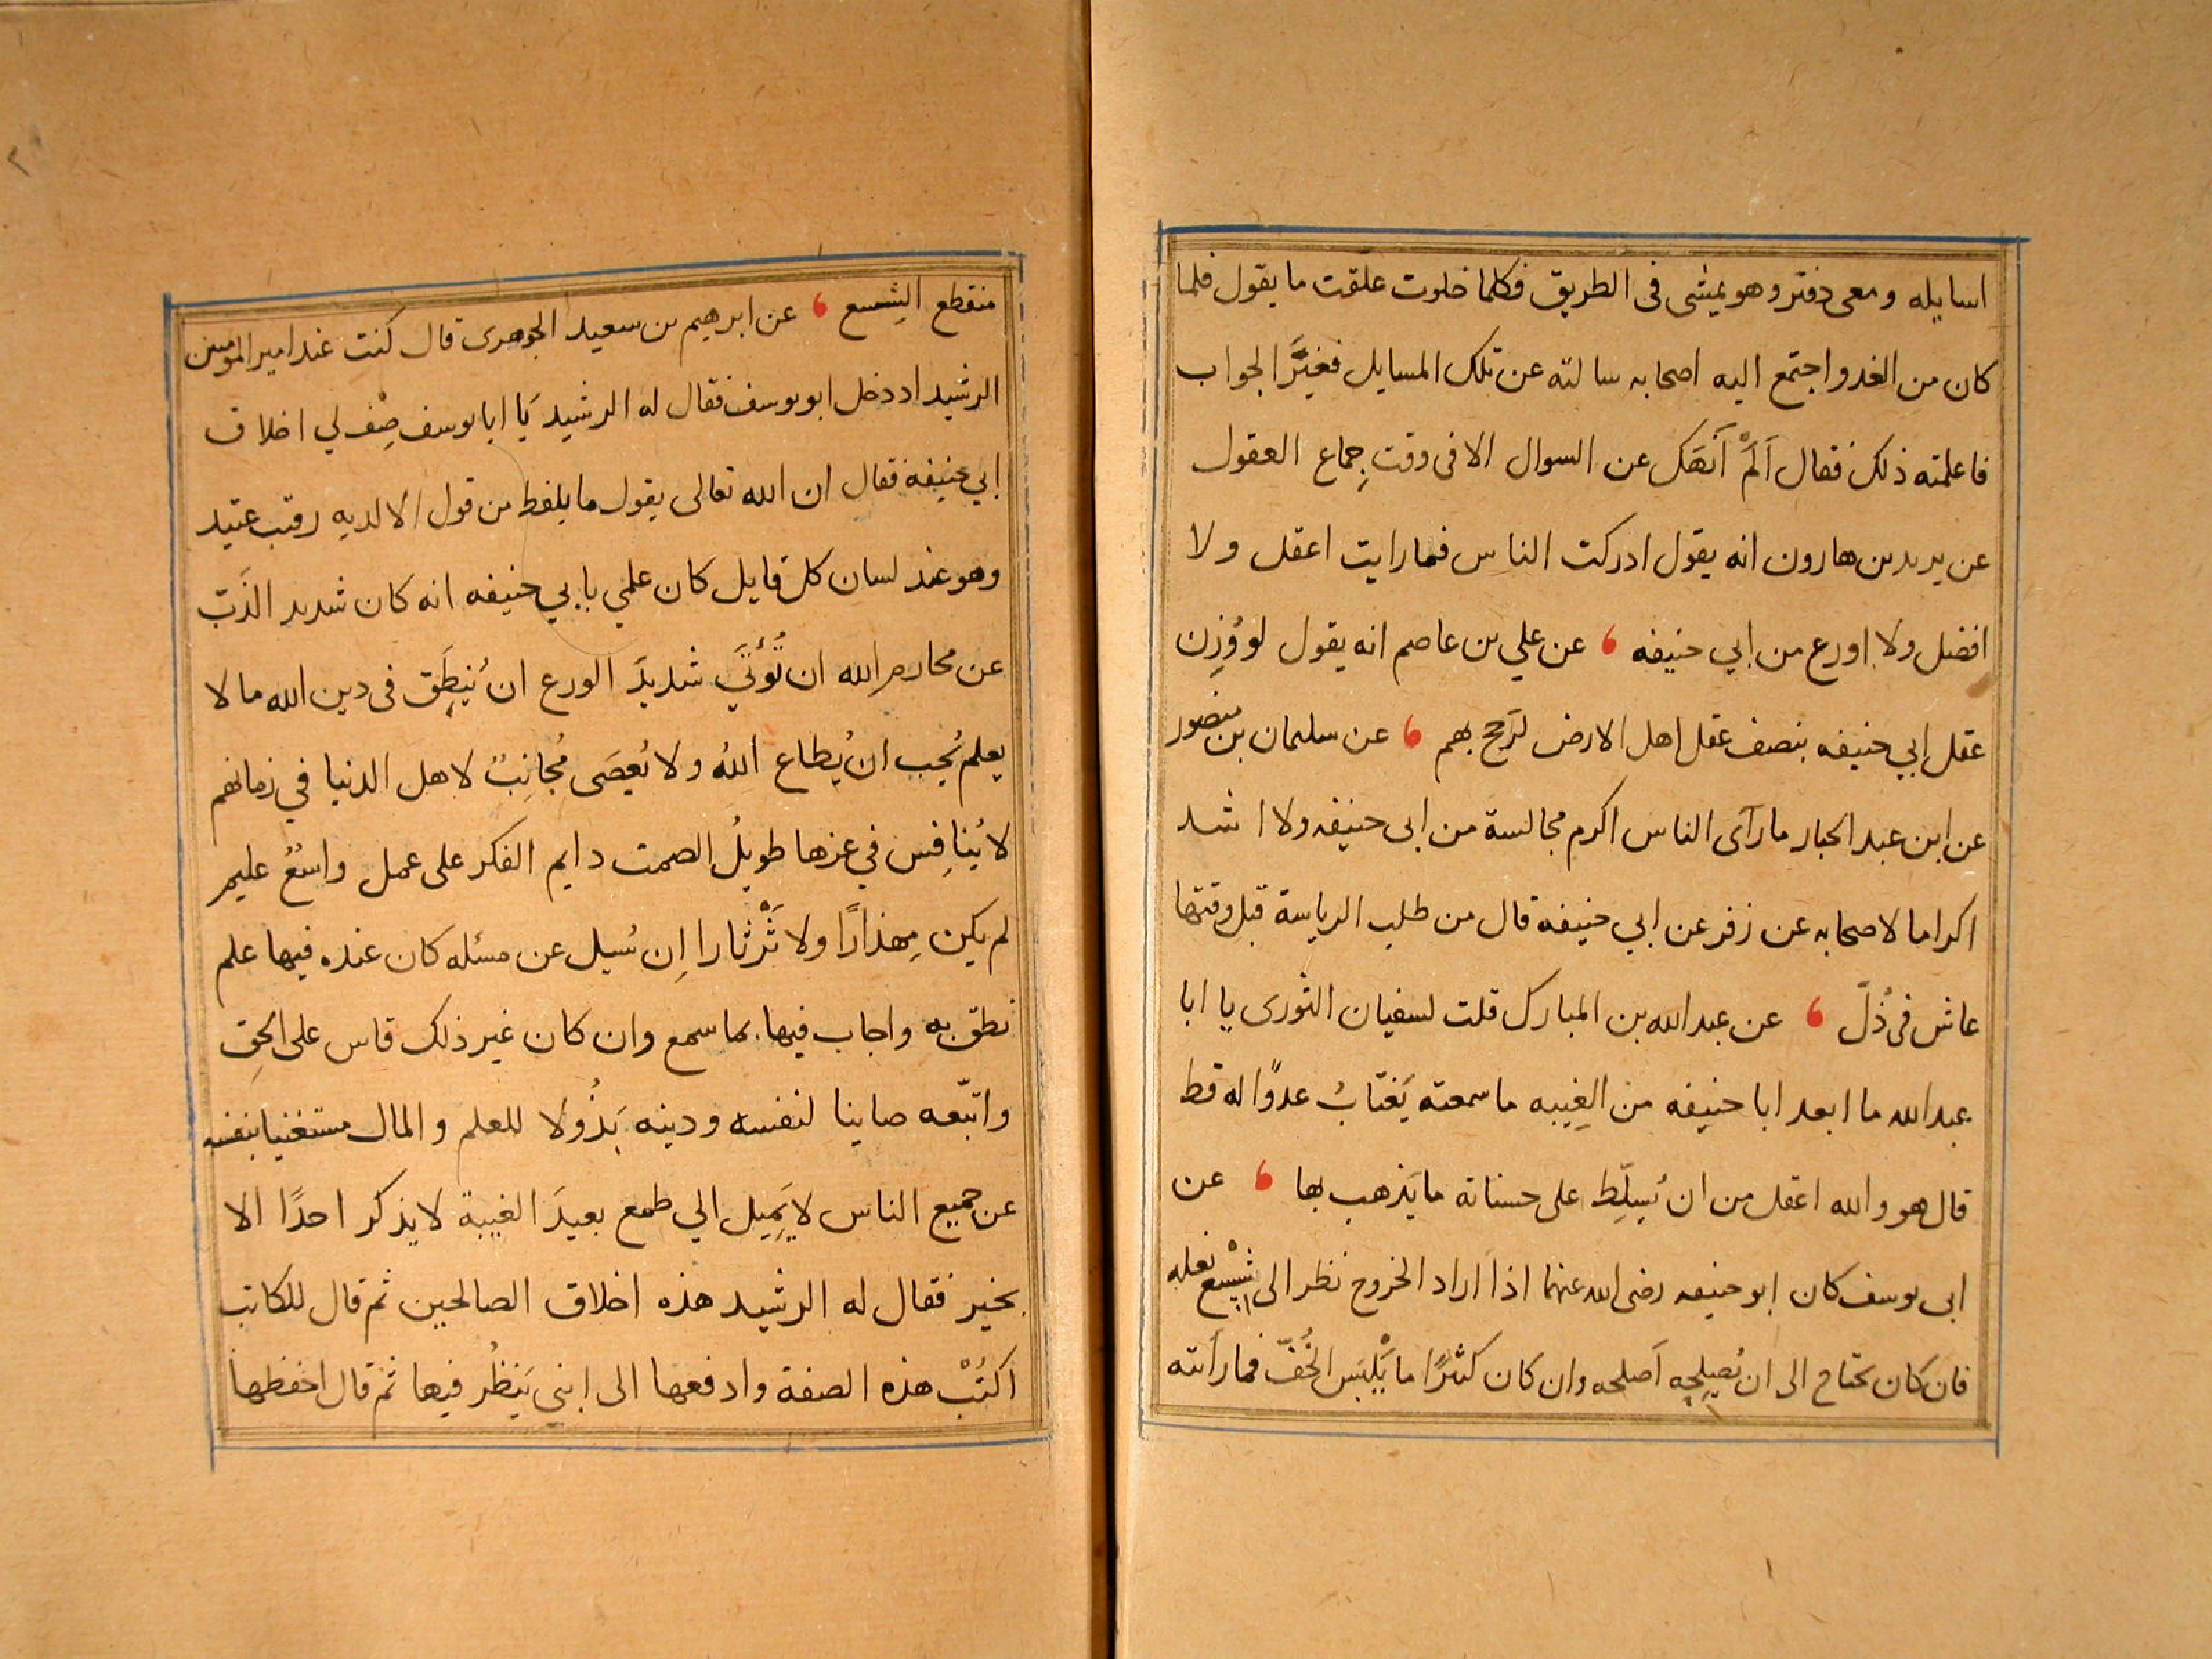 اسايله ومعى دفتر وهو يمشى فى الطريق فكلما خلوت علقت ما يقول فلما
كان من الغد واجتمع اليه اصحابه سالته عن تلك المسايل فغيَّر الجواب
فاعلمته ذلك فقال اَلَمْ اَنْهَكَ عن السوال الا فى وقت جِماع العقول
عن يزيد بن هارون انه يقول ادركت الناس فما رايت اعقل ولا
افضل ولا اورع من ابي حنيفه ، عن علي بن عاصم انه يقول لو وُزِن
عقل ابي حنيفه بنصف عقل اهل الارض لرَجح بهم ، عن سليمان بن منصور
عن ابن عبد الجبار ما رآى الناس اكرم مجالسة من ابى حنيفه ولا اشد
اكراما لاصحابه عن زفر عن ابي حنيفه قال من طلب الرياسة قبل وقتها
عاش فى ذُلّ ، عن عبد الله بن المبارك قلت لسفيان الثورى يا ابا
عبد الله ما ابعد ابا حنيفه من الغِيبه ما سمعته يَغتابُ عدوًا له قط
قال هو والله اعقل من ان يُسلِّط على حسناته ما يَذهب بها ، عن
ابى يوسف كان ابو حنيفه رضى الله عنهما اذا اراد الخروج نظر الى شِسْع نعله
فان كان يحتاج الى ان يُصلِحِه اَصلحه وان كان كثيرًا ما يَلْبَس الخُفّ فما رأيته
منقطع الشِسع ، عن ابرهيم بن سعيد الجوهرى قال كنت عند امير المومنين
الرشيد اذ دخل ابو يوسف فقال له الرشيد يَا ابا يوسف صِفْ لي اخلاق
ابي حنيفه فقال ان الله تعالى يقول ما يلفظ من قول الا لديه رقيب عتيد
وهو عند لسان كل قايل كان علمي بابي حنيفه انه كان شديد الذَبّ
عن محارم الله ان تُؤتَي شديدَ الورع ان يُنطِق فى دين الله ما لا
يعلم يُحِب ان يُطاع اللهُ ولا يُعصَى مُجانِبٌ لاهل الدنيا في زمانهم
لا يُنافِس في عزها طويلُ الصمت دايم الفكر على عمل واسعُ عليم
لم يكن مِهذارًا ولا ثَرْثارا اِن سُيل عن مسئله كان عنده فيها علم
نطق به واجاب فيها بما سمع وان كان غير ذلك قاس على الحق
واتبّعه صاينا لنفسه ودينه بَذُولا للعلم والمال مستغنيا بنفسه
عن جميع الناس لا يَمِيل الي طمع بعيدَ الغيبة لا يذكر احدًا الا
بخير فقال له الرشيد هذه اخلاق الصالحين ثم قال للكاتب
اكتُبْ هذه الصفة وادفعها الى ابنى يَنظُر فيها ثم قال احفظها